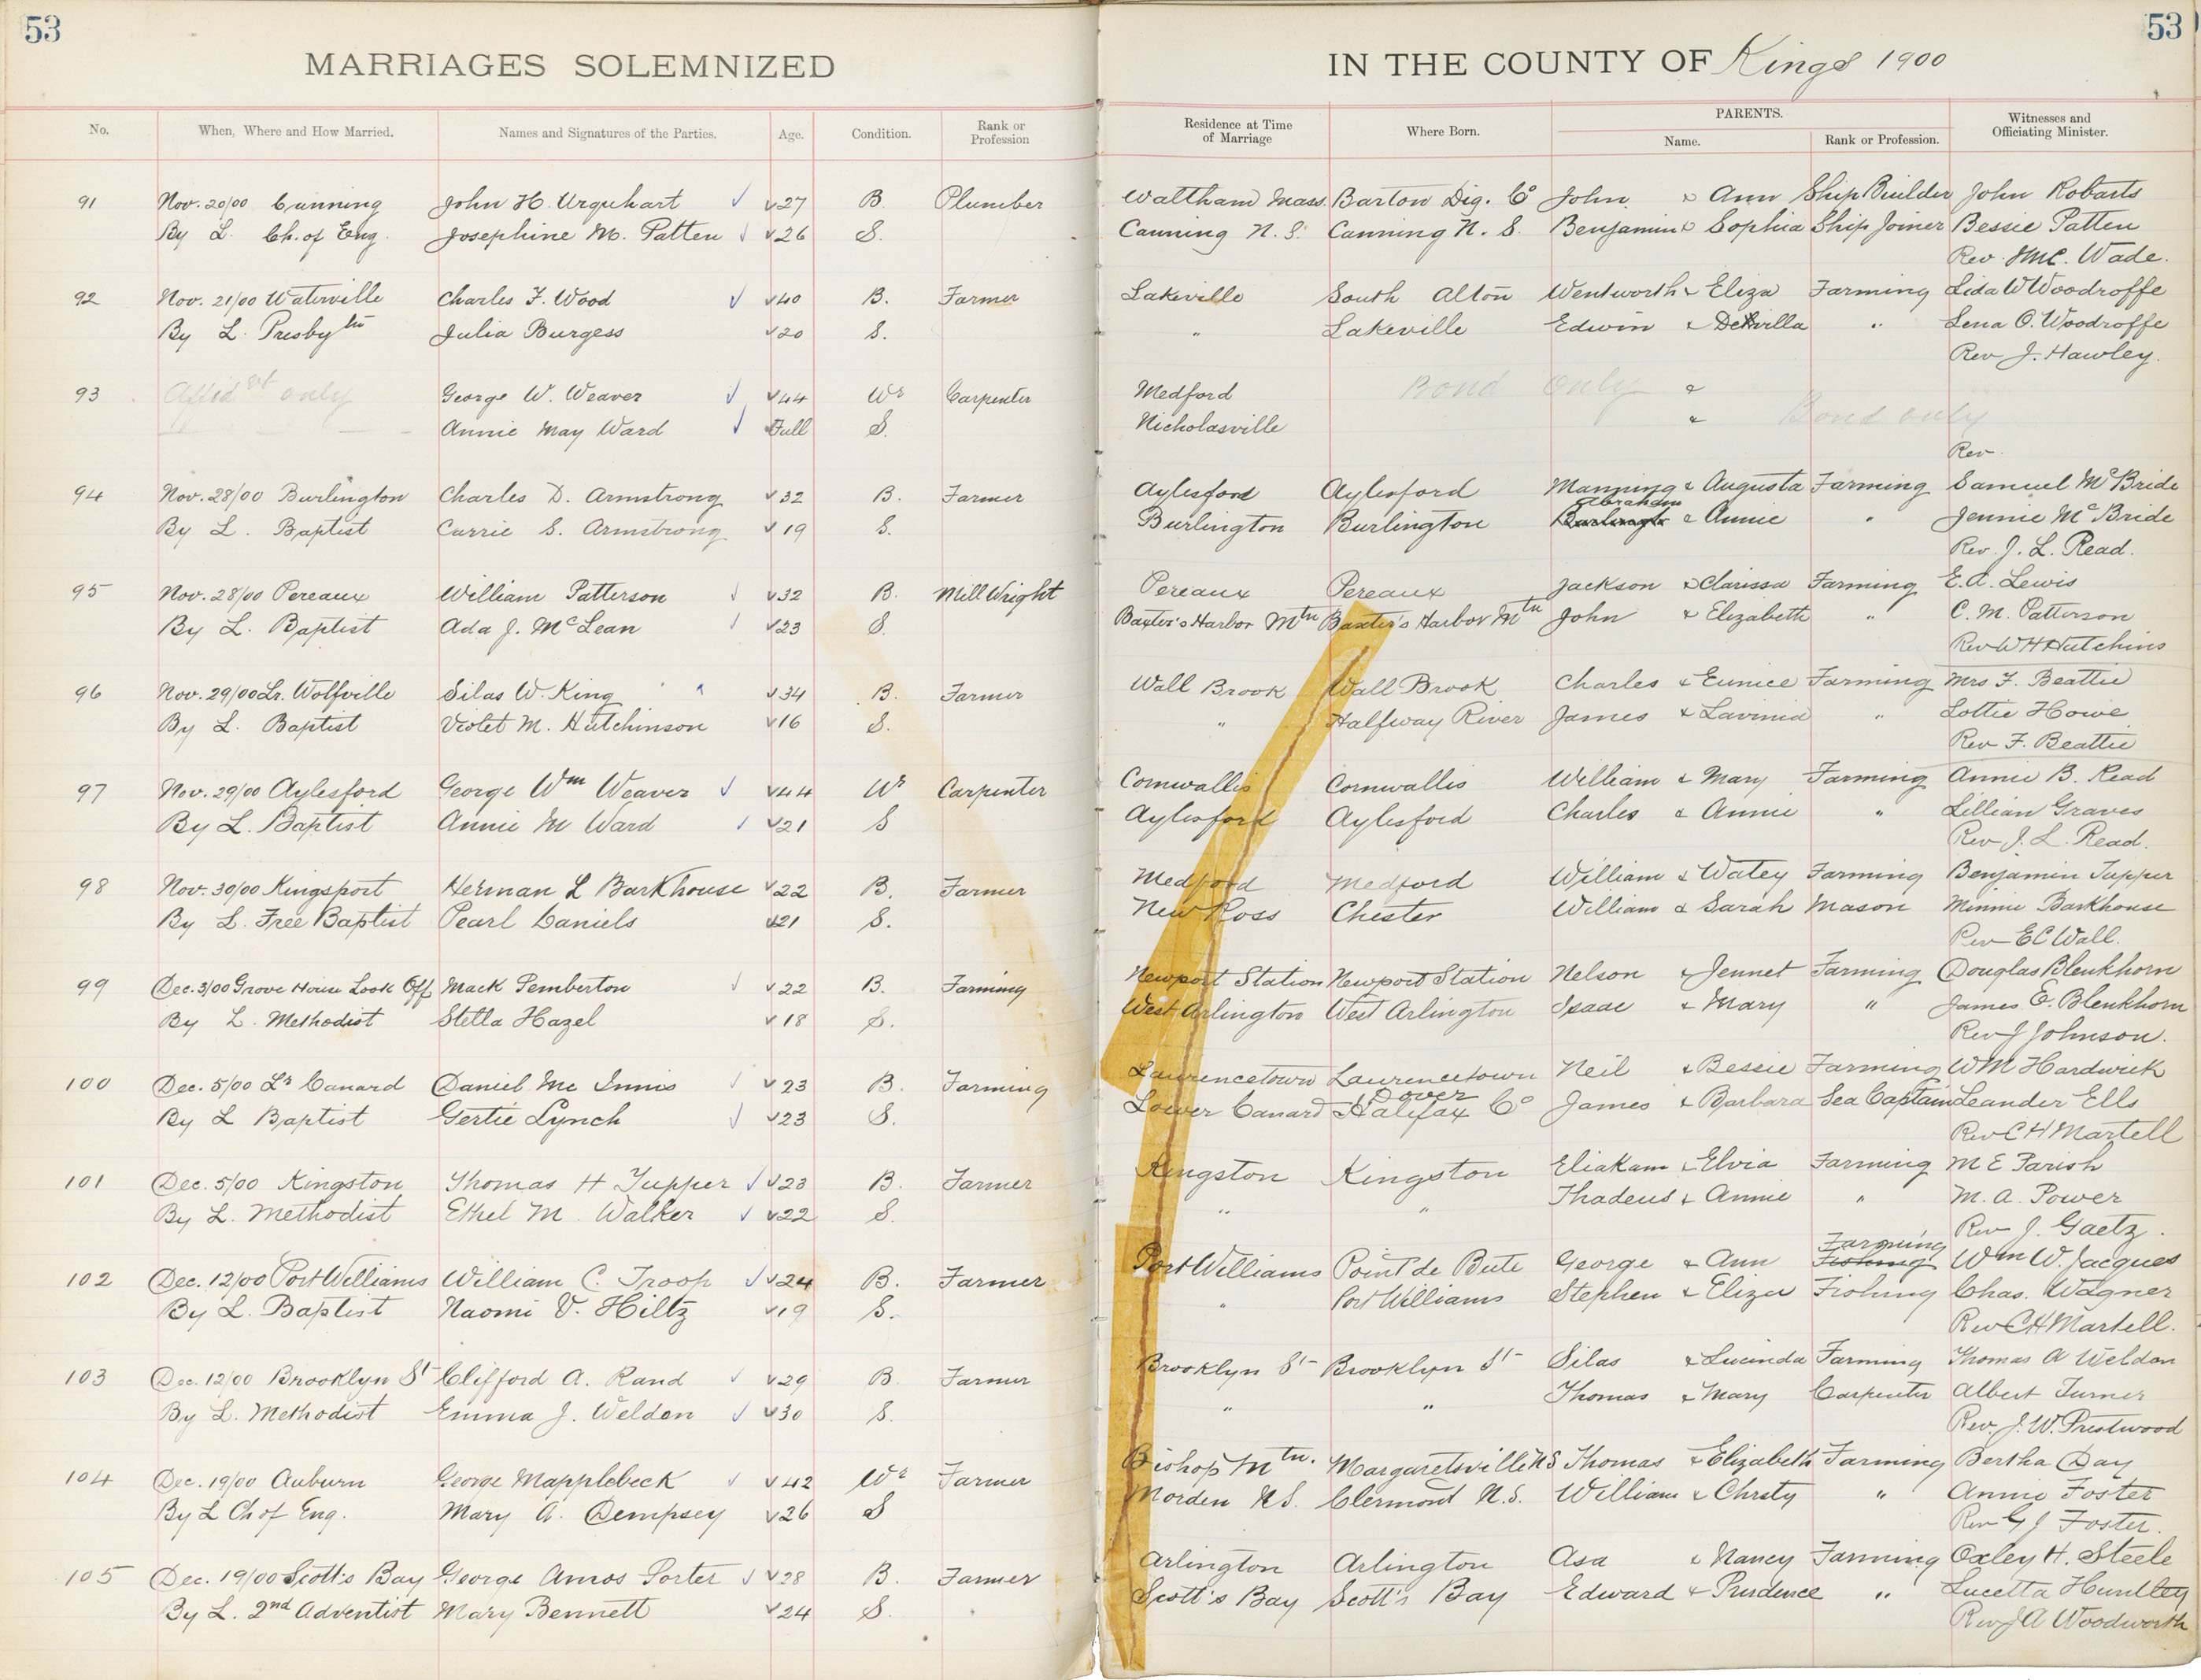 53
53
MARRIAGES SOLEMNIZED
IN THE COUNTY OF Kings 1900
No. When, Where and How Married. Names and Signatures of the Parties. Age. Condition. Rank or Profession Residence at Time of Marriage Where Born. PARENTS. Name. Rank or Profession. Witnesses and Officiating Minister.
91 Nov. 20/00 Canning John H. Urquhart 27 B. Plumber Waltham Mass. Barton Dig. Co John & Ann Ship Builder John Robarts
By L. Ch. of Eng. Josephine M. Patten 26 S. Canning N. S. Canning N. S. Benjamin & Sophia Ship Joiner Bessie Patten
Rev. Wade.
92 Nov. 21/00 Waterville Charles F. Wood 40 B. Farmer Lakeville South Alton Wentworth & Eliza Farming Lida W Woodroffe
By L. Presbytn Julia Burgess 20 S. " Lakeville Edwin & " Lena O. Woodroffe
Rev J. Hawley.
93 Affidvt only George W. Weaver 44 Wr Carpenter Medford Bond only &
Annie May Ward Full S. Nicholasville & Bond only
Rev.
94 Nov. 28/00 Burlington Charles D. Armstrong 32 B. Farmer Aylesford Aylesford Manning & Augusta Farming Samuel McBride
By L. Baptist Carrie S. Armstrong 19 S. Burlington Burlington Abraham & Annie " Jennie McBride
Rev. J. L. Read.
95 Nov. 28/00 Pereaux William Patterson 32 B. Mill Wright Pereaux Pereaux Jackson & Clarissa Farming E. A. Lewis
By L. Baptist Ada J. McLean 23 S. Baxter's Harbor Mtn Baxter's Harbor Mtn John & Elizabeth " C. M. Patterson
Rev W H Hutchins
96 Nov. 29/00 Lr. Wolfville Silas W. King 34 B. Farmer Wall Brook Wall Brook Charles & Eunice Farming Mrs F. Beattie
By L. Baptist Violet M. Hutchinson 16 S. " Halfway River James & Lavinia " Lottie Howe
Rev F. Beattie
97 Nov. 29/00 Aylesford George Wm Weaver 44 Wr Carpenter Cornwallis Cornwallis William & Mary Farming Annie B. Read
By L. Baptist Annie M Ward 21 S Aylesford Aylesford Charles & Annie " Lillian Graves
Rev J. L. Read.
98 Nov. 30/00 Kingsport Herman L Barkhouse 22 B. Farmer Medford Medford William & Watey Farming Benjamin Tupper
By L. Free Baptist Pearl Daniels 21 S. New Ross Chester William & Sarah Mason Minnie Barkhouse
Rev E C Wall.
99 Dec. 3/00 Grove House Look Off Mack Pemberton 22 B. Farming Newport Station Newport Station Nelson & Jennet Farming Douglas Blenkhorn
By L. Methodist Stella Hazel 18 S. West Arlington West Arlington Isaac & Mary " James E. Blenkhorn
Rev J Johnson.
100 Dec. 5/00 Lr Canard Daniel Mc Innis 23 B. Farming Laurencetown Laurencetown Neil & Bessie Farming W M Hardwick
By L Baptist Gertie Lynch 23 S. Lower Canard Dover Halifax Co James & Barbara Sea Captain Leander Ells
Rev C H Martell
101 Dec. 5/00 Kingston Thomas H Tupper 23 B. Farmer Kingston Kingston Eliakam & Elvia Farming M E Parish
By L. Methodist Ethel M. Walker 22 S. " " Thadeus & Annie " M. A. Power
Rev J. Gaetz.
102 Dec. 12/00 Port Williams William C. Troop 24 B. Farmer Port Williams Point de Bute George & Ann Fishing Farming Wm W. Jacques
By L. Baptist Naomi V. Hiltz 19 S. " Port Williams Stephen & Eliza Fishing Chas. Wagner
Rev C H Martell.
103 Dec. 12/00 Brooklyn St Clifford A. Rand 29 B. Farmer Brooklyn St Brooklyn St Silas & Lucinda Farming Thomas A Weldon
By L. Methodist Emma J. Weldon 30 S. " " Thomas & Mary Carpenter Albert Turner
Rev. J. W. Prestwood
104 Dec. 19/00 Auburn George Mapplebeck 42 Wr Farmer Bishop Mtn. Margaretsville NS Thomas & Elizabeth Farming Bertha Day
By L Ch of Eng. Mary A. Dempsey 26 S Morden N.S. Clermont N.S. William & Christy " Annie Foster
Rev G J Foster.
105 Dec. 19/00 Scott's Bay George Amos Porter 28 B. Farmer Arlington Arlington Asa & Nancy Farming Oxley H. Steele
By L. 2nd Adventist Mary Bennett 24 S. Scott's Bay Scott's Bay Edward & Prudence " Lucetta Huntley
Rev J A Woodworth